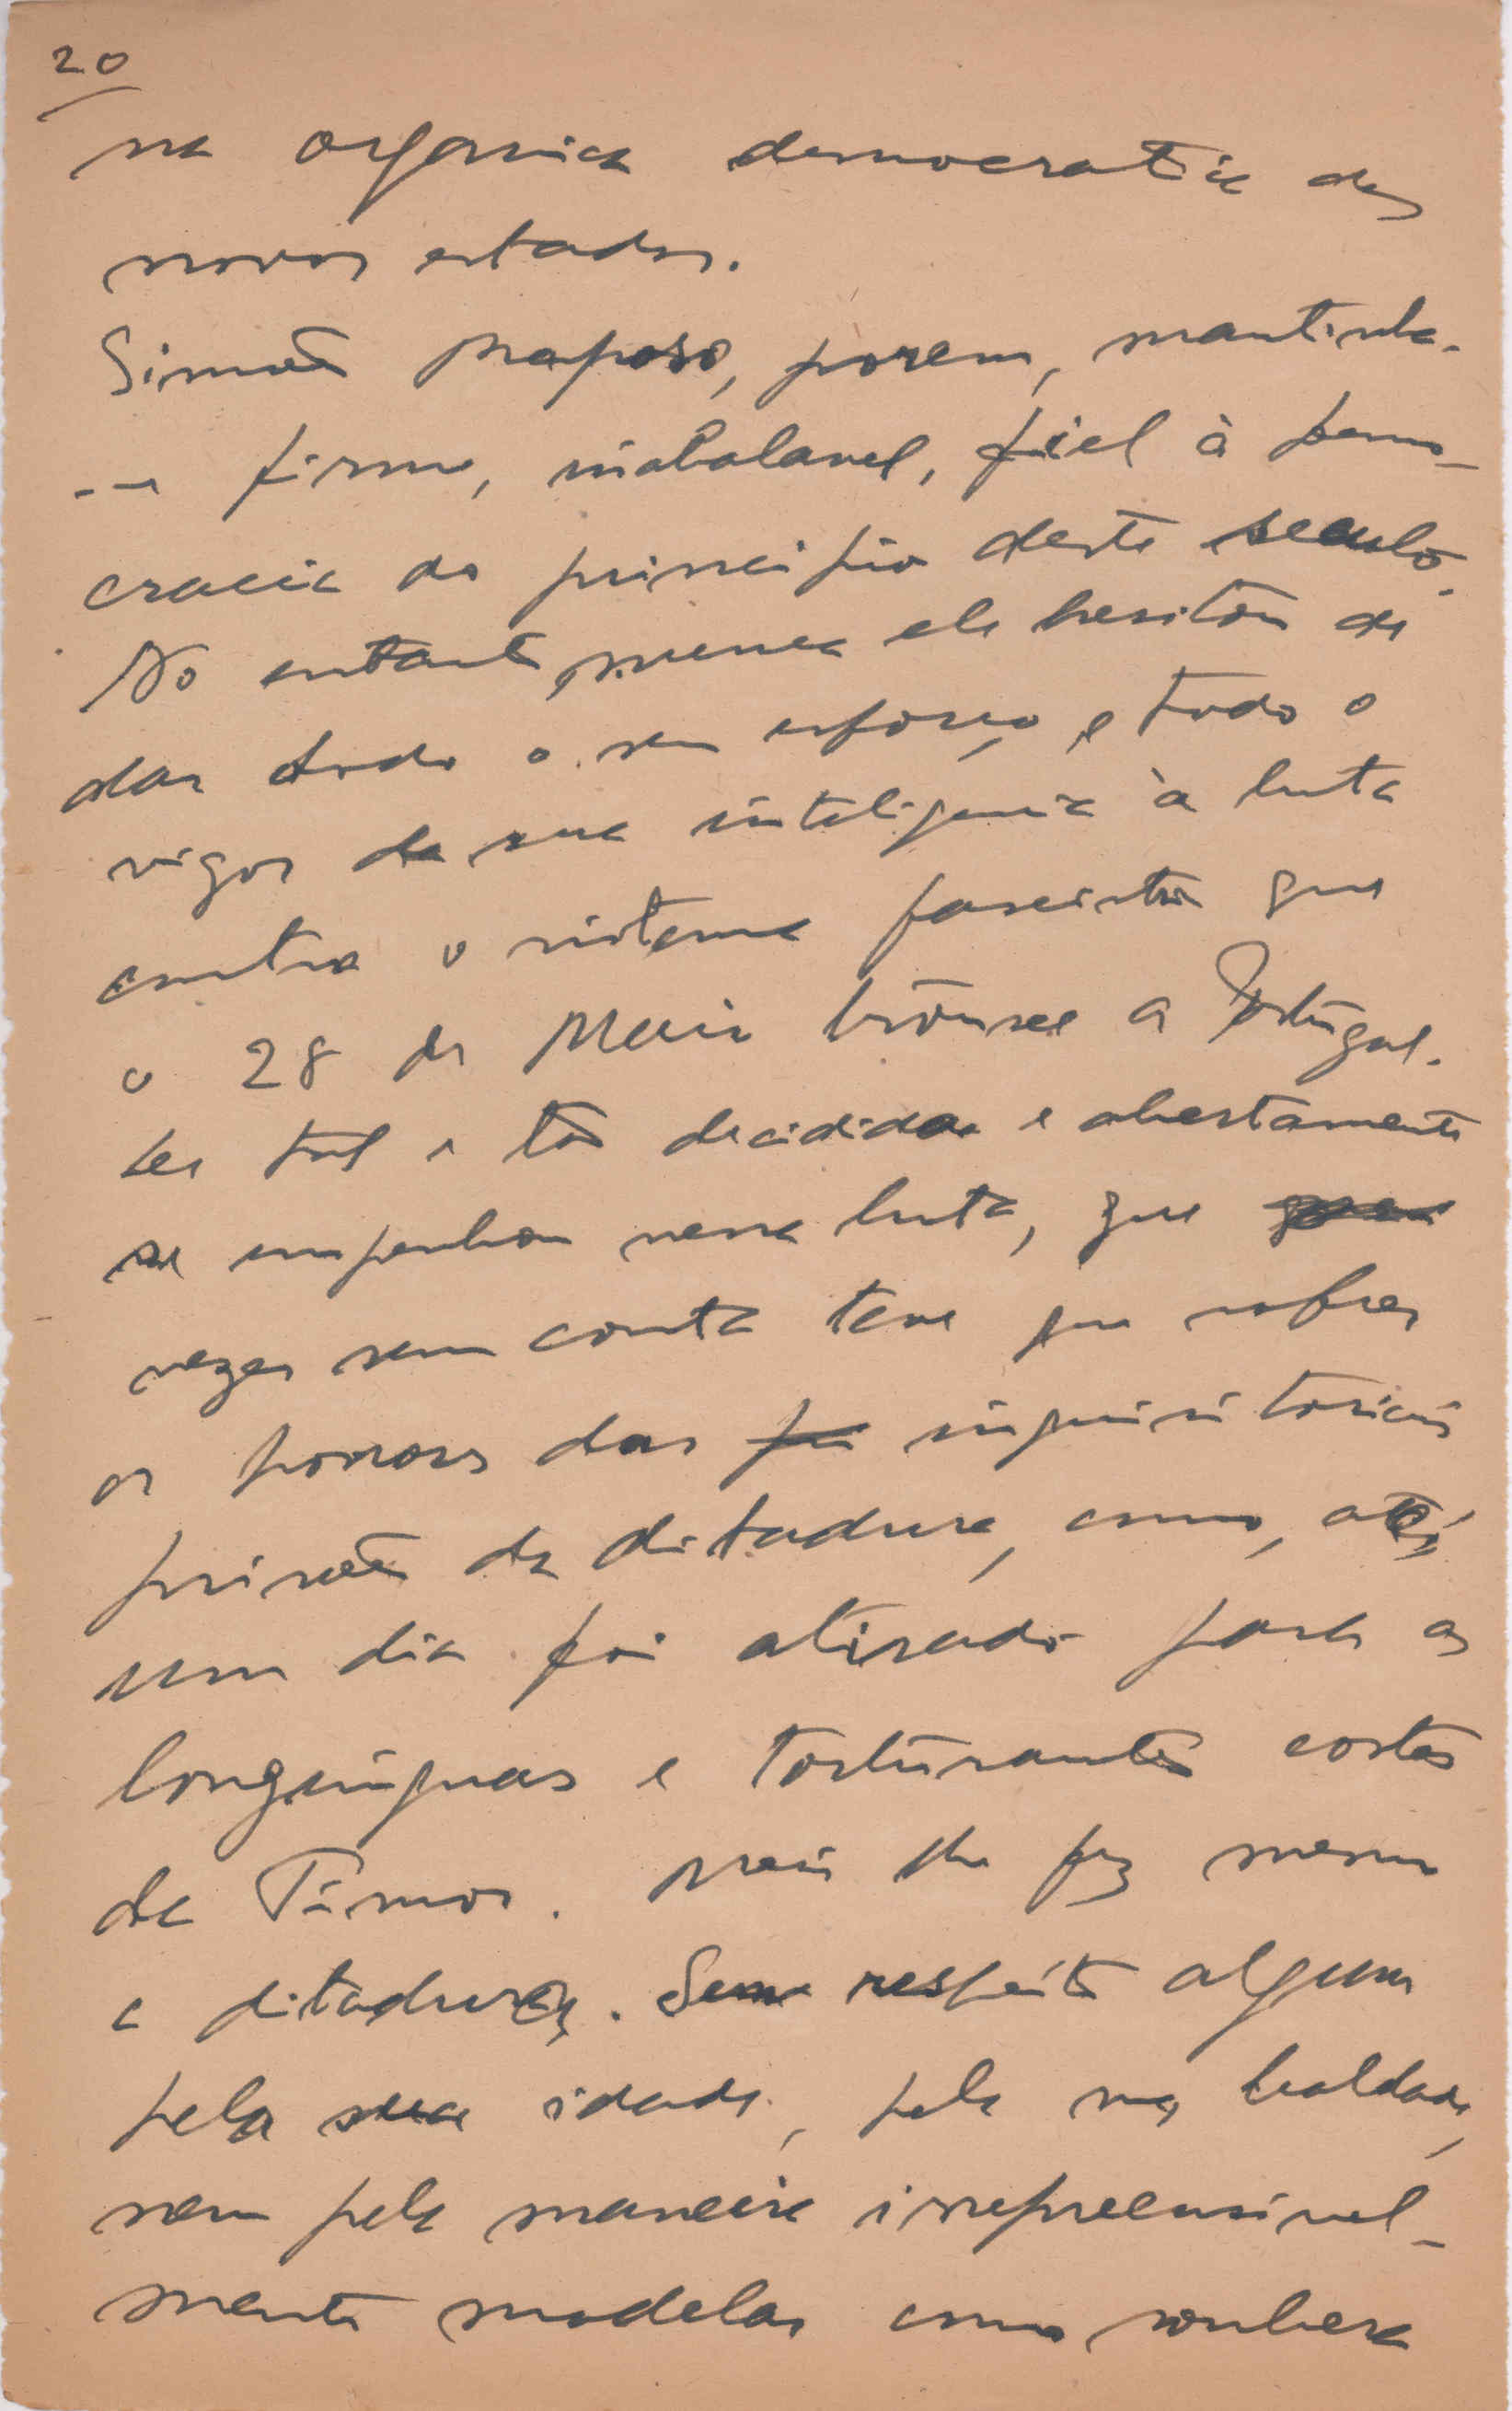 20
na organica democratica dos
novos estados.
Simões Raposo, porem, mantinha-
-se firme, inabalavel, fiel à demo-
cracia do principio deste seculo.
No entanto, nunca ele hesitou de
dar todo o seu esforço e todo o
vigor da sua inteligencia à luta
contra o sistema fascista que
o 28 de Maio trouxe a Portugal.
tal e tão decidida e abertamente
se empenhou nessa luta, que
vezes sem conta teve que sofrer
os horrores das inquisitoriais
prisões da ditadura, como, até,
um dia foi atirado para as
longinquas e torturantes costas
de Timor. Mais lhe fez mesmo
a ditadura. Sem respeito algum
pela sua idade, pela sua lealdade,
nem pela maneira irrepreensivel-
mente modelar como soubera